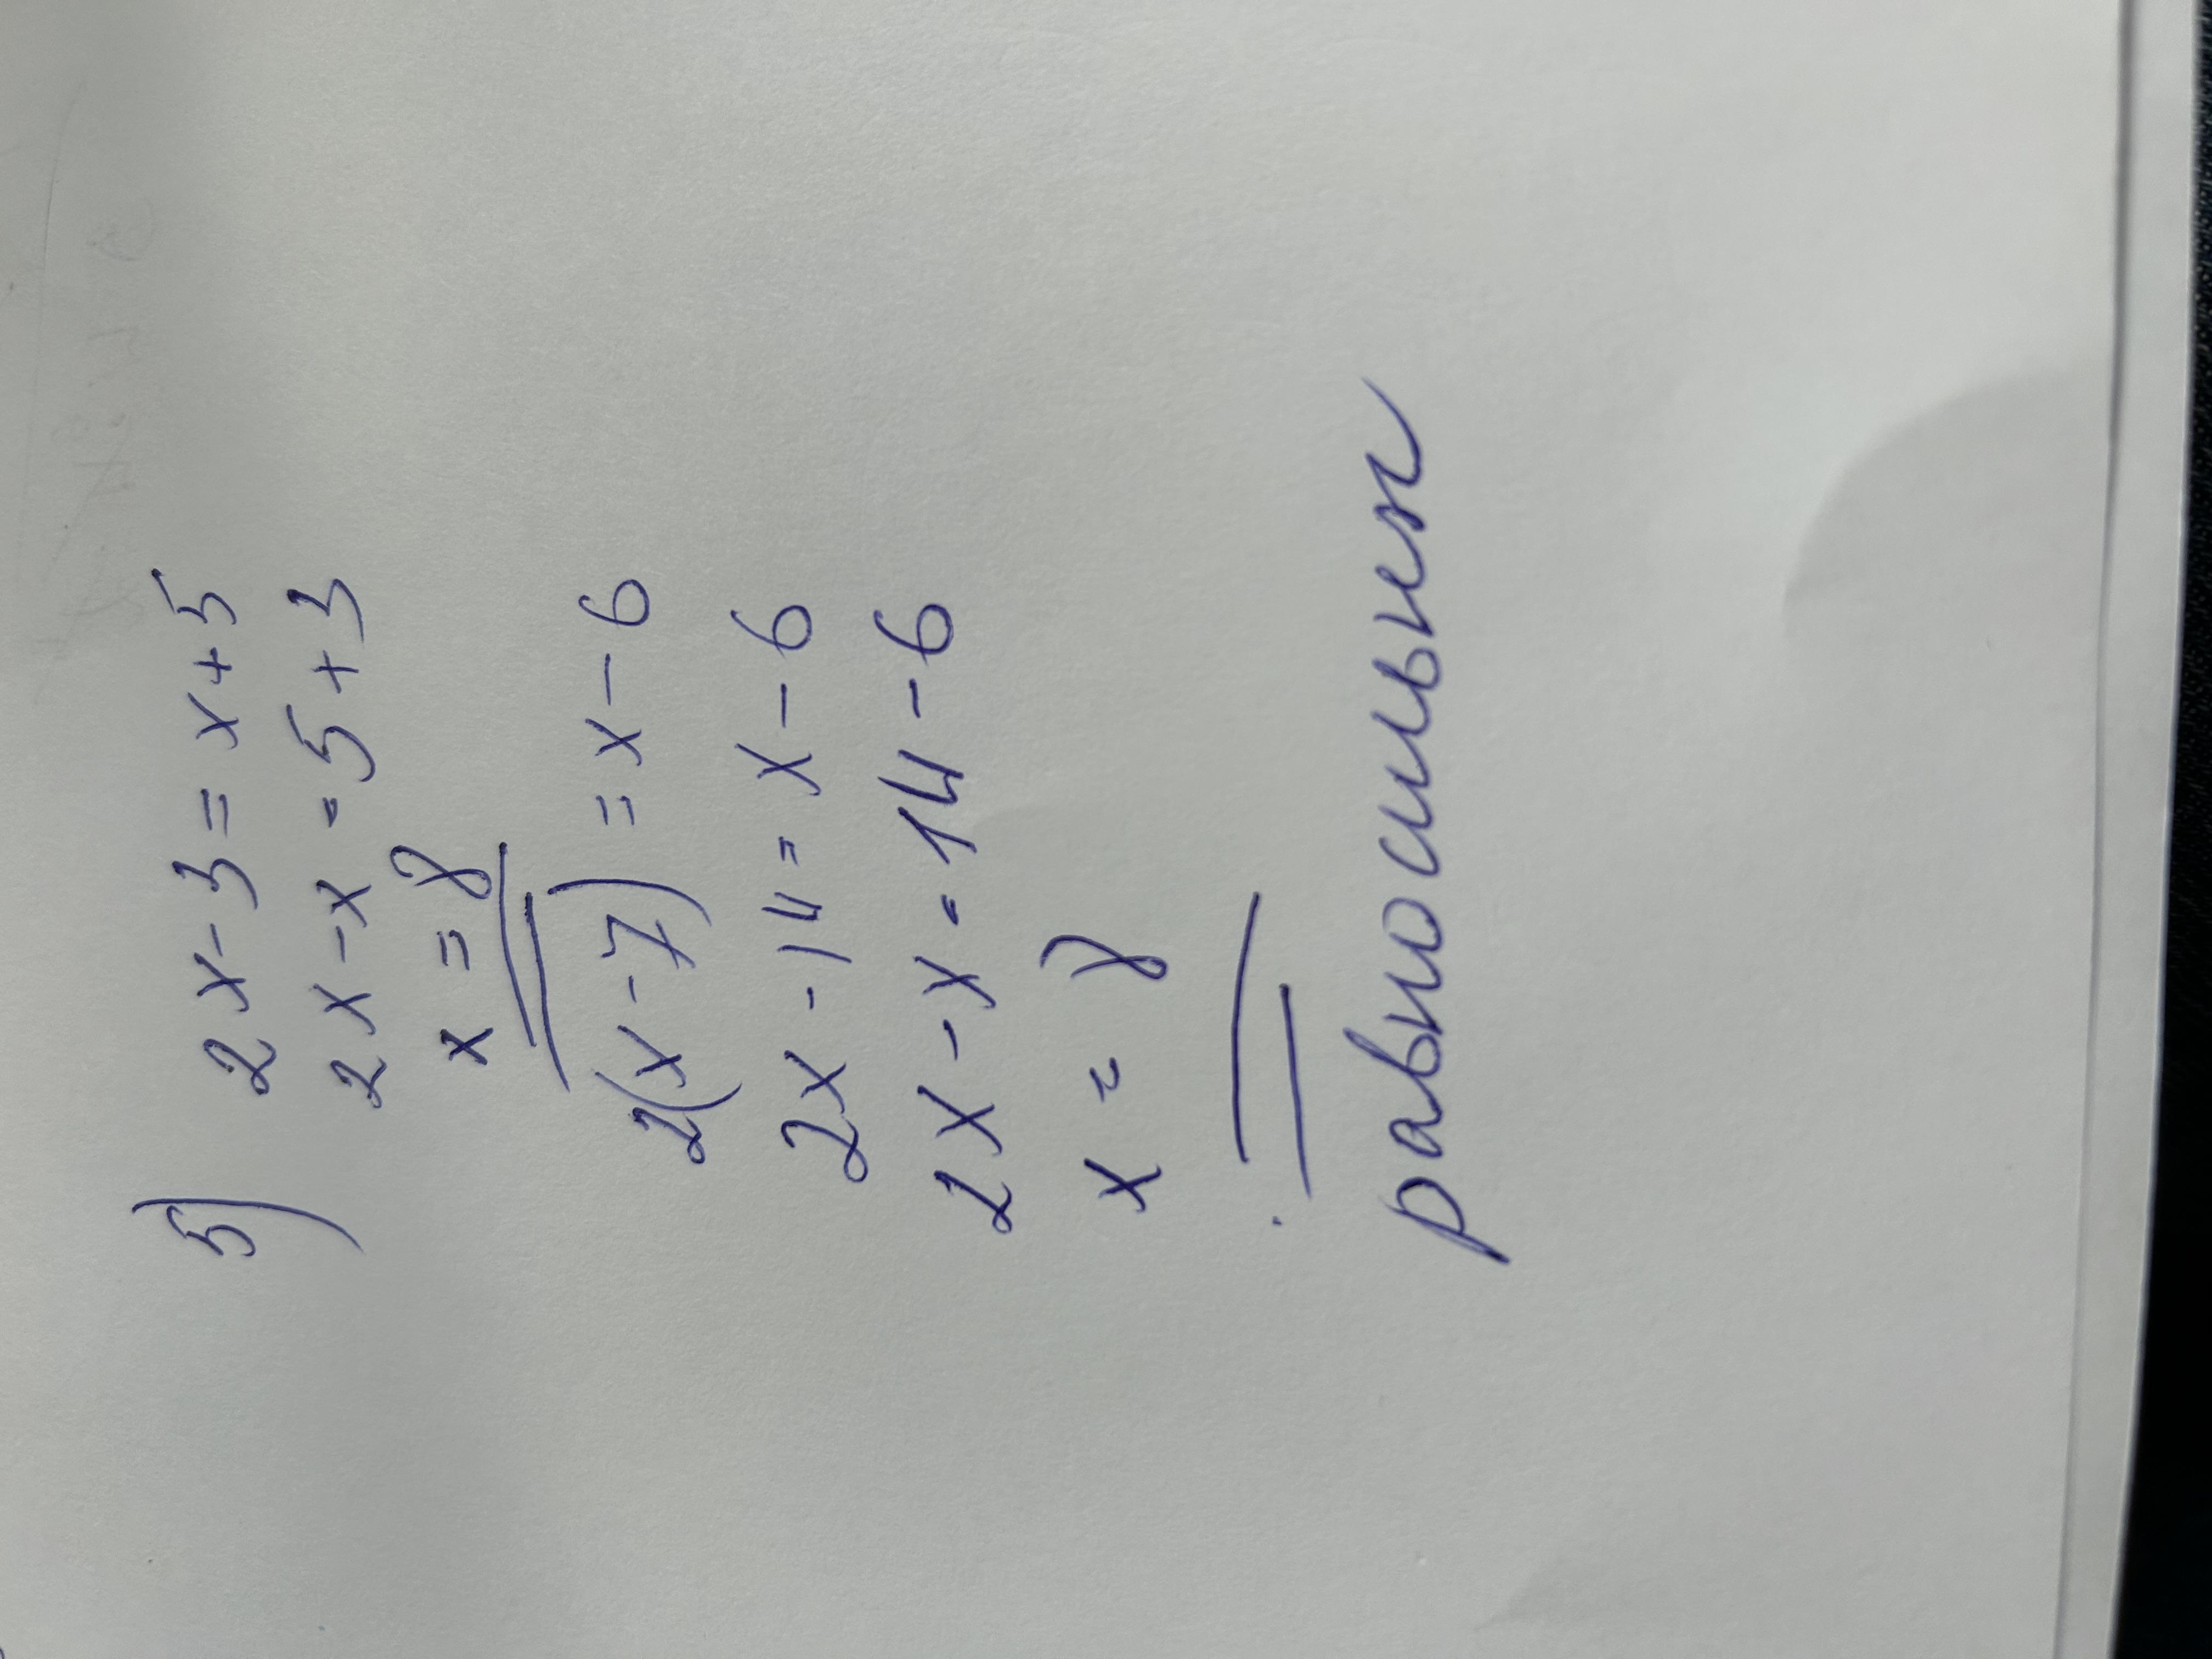 5) 2x-3=x+5
2x-x=5+3
x=8
2(x-7)=x-6
2x-14=x-6
2x-x=14-6
x=8
равносильн